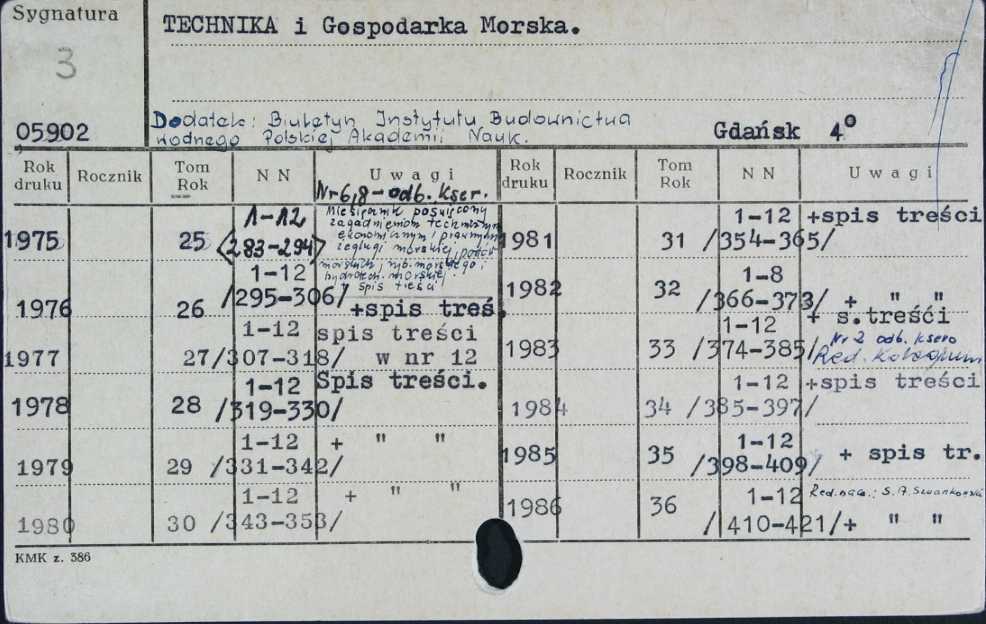 Sygnatura
3
05902
TECHNIKA i Gospodarka Morska.
Dodatek: Biuletyn Instytutu Budownictwa
wodnego Polskiej Akademii Nauk.
Gdańsk 4°
Rok druku Rocznik Tom Rok N N U w a g i Rok druku Rocznik Tom Rok N N U w a g i
Nr 6,8 - odb. kser.
1975 25 1-12 <283-294>
Miesięcznik poświęcony
zagadnieniom technicznym
ekonomicznym i prawnym
żeglugi morskiej, portów
morskich, ryb. morskiego i
hydrotech. morskiej.
spis treści
1976 26 1-12 /295-306/ +spis treś.
1977 27 1-12 /307-318/ spis treści w nr 12
1978 28 1-12 /319-330/ Spis treści.
1979 29 1-12 /331-342/ + " "
1980 30 1-12 /343-353/ + " "
1981 31 1-12 /354-365/ +spis treści
1982 32 1-8 /366-373/ + " "
1983 33 1-12 /374-385/ + s.treśći
Nr 2 odb. ksero
Red. Kolegium
1984 34 1-12 /385-397/ +spis treści
1985 35 1-12 /398-409/ + spis tr.
1986 36 1-12 /410-421/+ " "
Red. nacz.: S. A.
KMK z. 386